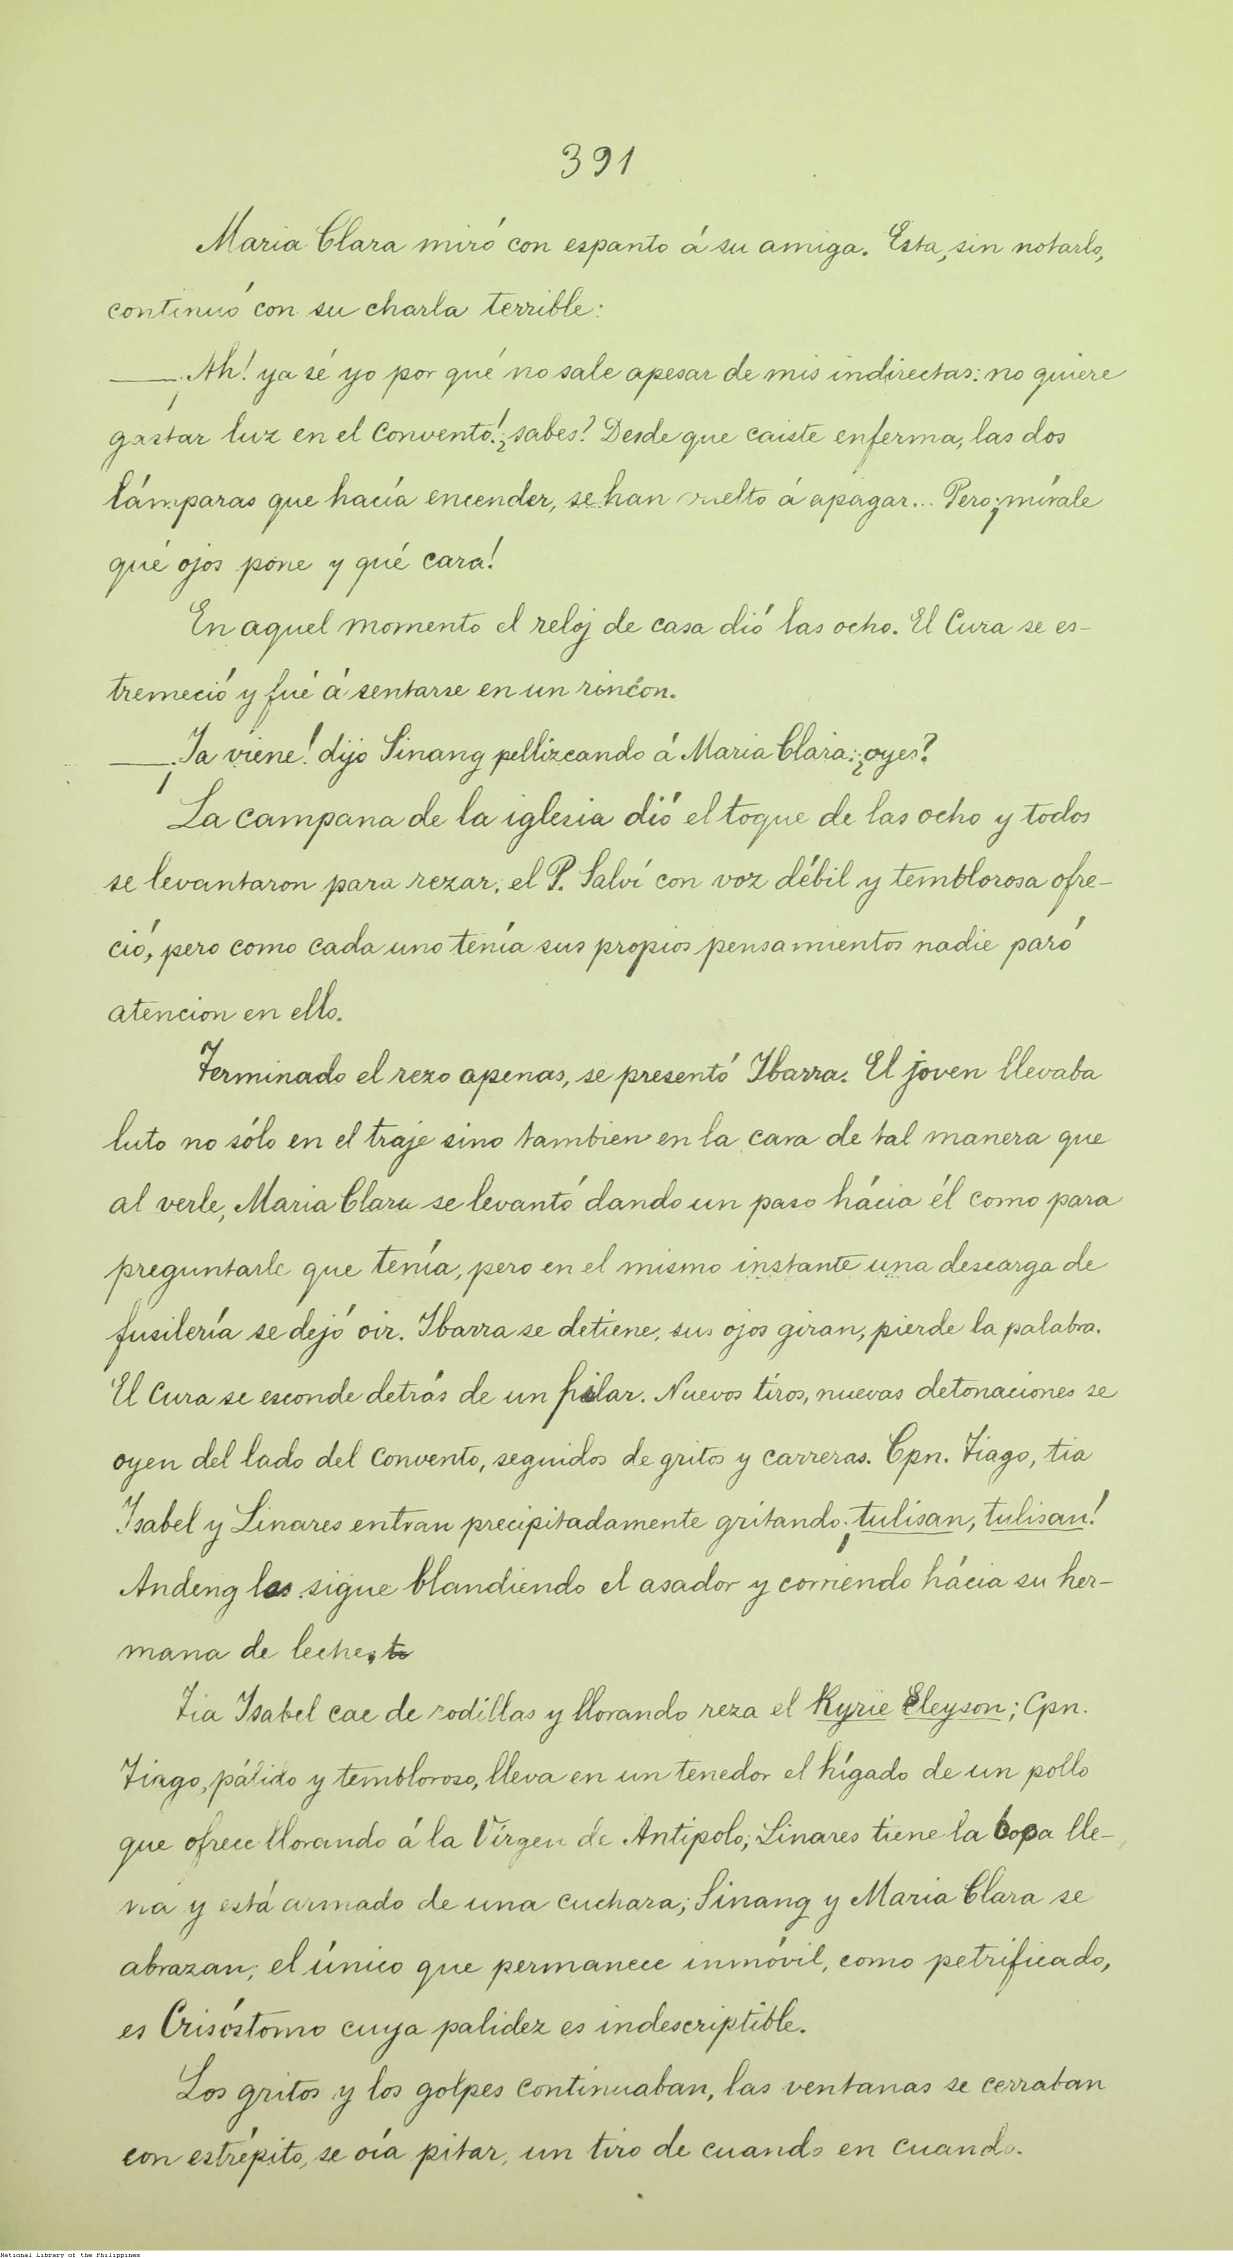 391
Maria Clara miró con espanto á su amiga. Esta, sin notarlo,
continuó con su charla terrible:
—¡Ah! ya sé yo por qué no sale apesar de mis indirectas: no quiere
gastar luz en el Convento! ¿sabes? Desde que caiste enferma, las dos
lámparas que hacía encender, se han vuelto á apagar... Pero ¡mírale
qué ojos pone y qué cara!
En aquel momento el reloj de casa dió las ocho. El Cura se es-
tremeció y fué á sentarse en un rincón.
—¡Ya viene! dijo Sinang pellizcando á Maria Clara: ¿oyes?
La campana de la iglesia dió el toque de las ocho y todos
se levantaron para rezar; el P. Salví con voz débil y temblorosa ofre-
ció, pero como cada uno tenía sus propios pensamientos nadie paró
atencion en ello.
Terminado el rezo apenas, se presentó Ibarra. El joven llevaba
luto no sólo en el traje sino tambien en la cara de tal manera que
al verle, Maria Clara se levantó dando un paso hácia él como para
preguntarle que tenía, pero en el mismo instante una descarga de
fusilería se dejó oir. Ibarra se detiene, sus ojos giran, pierde la palabra.
El Cura se esconde detrás de un pilar. Nuevos tiros, nuevas detonaciones se
oyen del lado del Convento, seguidos de gritos y carreras. Cpn. Tiago, tia
Isabel y Linares entran precipitadamente gritando ¡tulisan, tulisan!
Andeng los sigue blandiendo el asador y corriendo hácia su her-
mana de leche.
Tia Isabel cae de rodillas y llorando reza el Kyrie Eleyson; Cpn.
Tiago, pálido y tembloroso, lleva en un tenedor el hígado de un pollo
que ofrece llorando á la Vírgen de Antipolo; Linares tiene la boca lle-
na y está armado de una cuchara; Sinang y Maria Clara se
abrazan; el único que permanece inmóvil, como petrificado,
es Crisóstomo cuya palidez es indescriptible.
Los gritos y los golpes continuaban, las ventanas se cerraban
con estrépito, se oía pitar, un tiro de cuando en cuando.
National Library of the Philippines